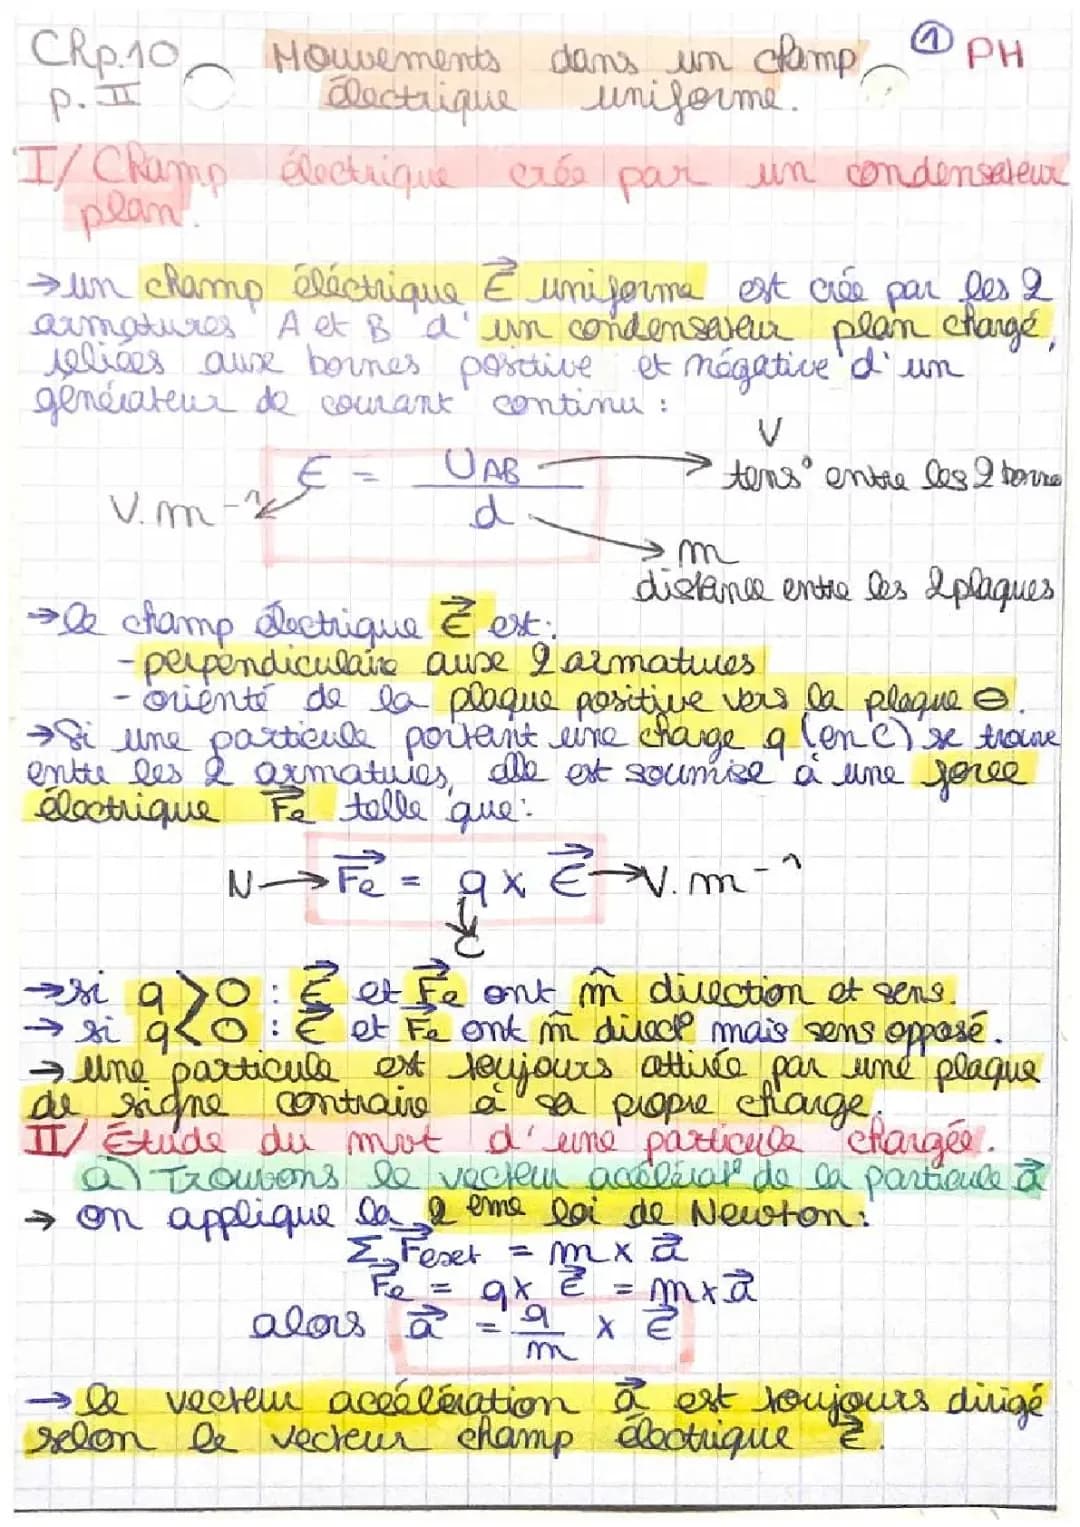 Chp.10 Mouvements dans un champ ① PH
p. II électrique uniforme.
I/ Champ électrique crée par un condensateur
plan.
→ un champ éléctrique E uniforme est crée par les 2
armatures A et B d'un condensateur plan chargé,
reliées aux bornes positive et négative d'un
générateur de courant continu :
V
E = UAB / d → tens° entre les 2 borne
V.m-1
m
distance entre les 2 plaques
→ le champ électrique E est :
- perpendiculaire aux 2 armatures
- orienté de la plaque positive vers la plaque ⊖.
→ Si une particule portant une charge q (en C) se trouve
entre les 2 armatures, elle est soumise à une force
électrique Fe telle que :
N → Fe = q x E → V.m-1
C
→ si q > 0 : E et Fe ont m̂ direction et sens.
→ si q < 0 : E et Fe ont m̂ direct° mais sens opposé.
→ une particule est toujours attirée par une plaque
de signe contraire à sa propre charge.
II/ Étude du mvt d'une particule chargée.
a) Trouvons le vecteur accélérat° de la particule a
→ on applique la 2 eme loi de Newton :
Σ Fext = m x a
Fe = q x E = m x a
alors a = q/m x E
→ le vecteur accélération a est toujours dirigé
selon le vecteur champ électrique E.